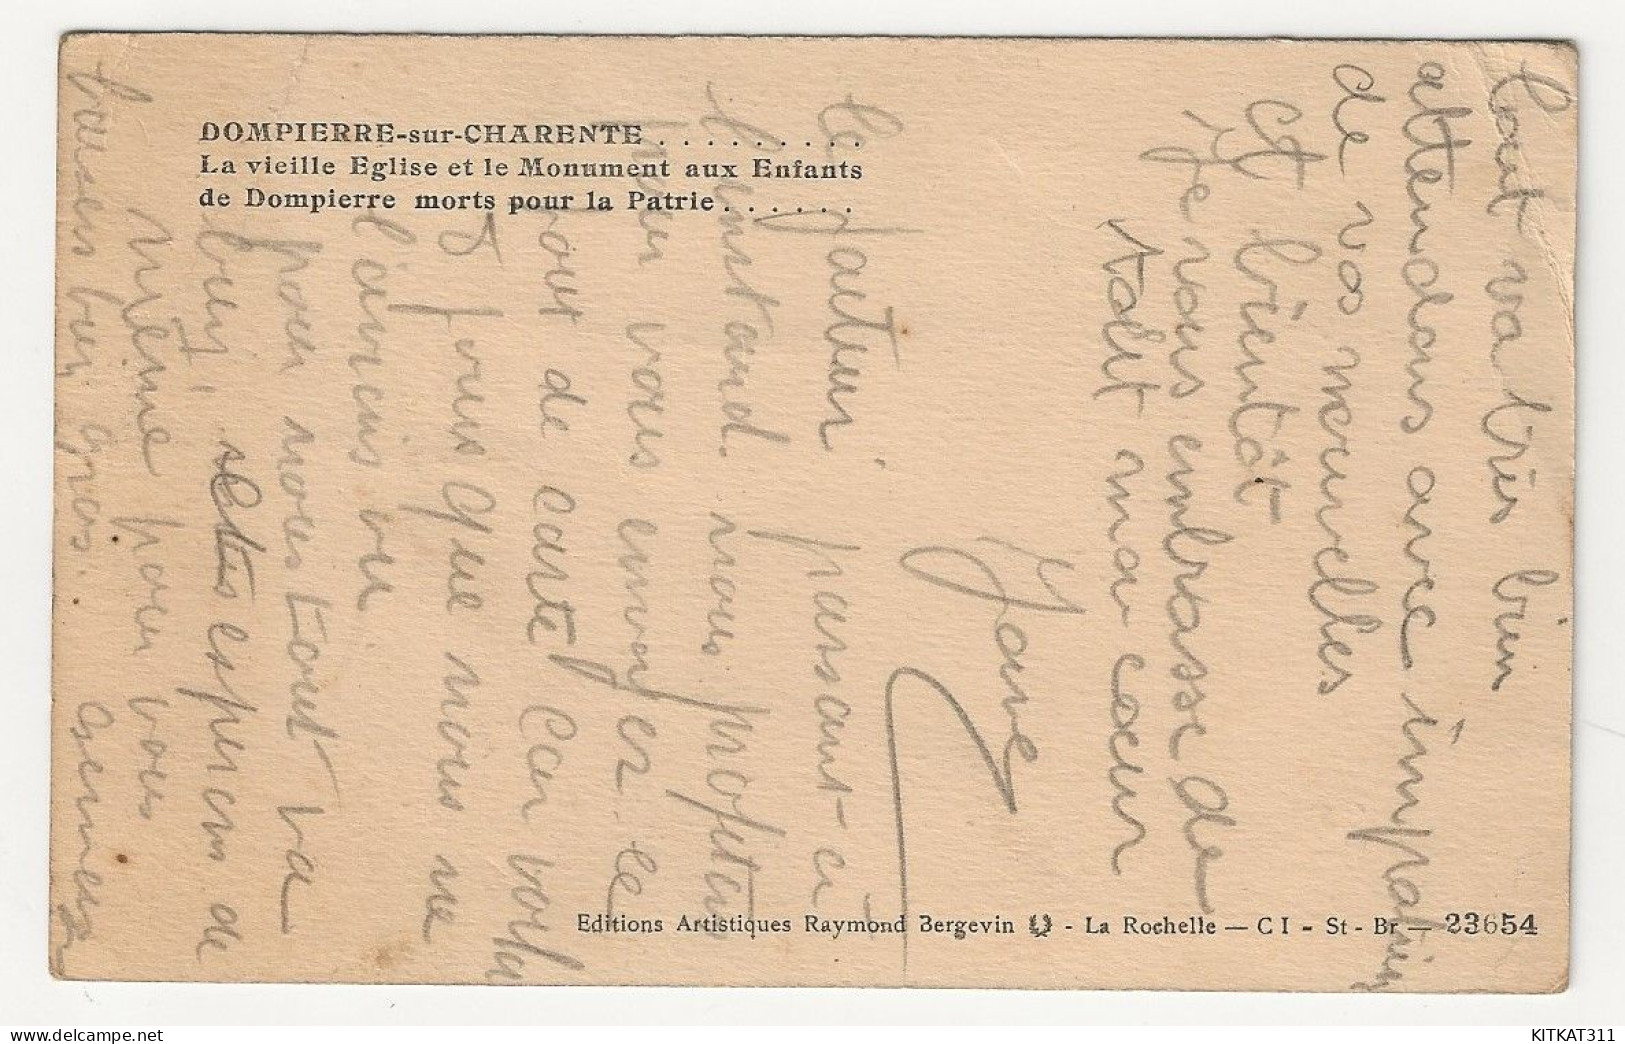 DOMPIERRE-sur-CHARENTE . . . . . . . . .
La vieille Eglise et le Monument aux Enfants
de Dompierre morts pour la Patrie . . . . . .
tout va très bien
attendons avec impatience
de vos nouvelles
et bientôt
je vous embrasse de
tout mon coeur
le facteur passant ci
l'instand nous profitons
vous envoyer le
tour de carte Car voila
5 jours que nous ne
l'avions vu
pour nous tout va
bien, espérons de
même pour vous
baisers bien gros.
Editions Artistiques Raymond Bergevin - La Rochelle — C I - St - Br — 23654
KITKAT311